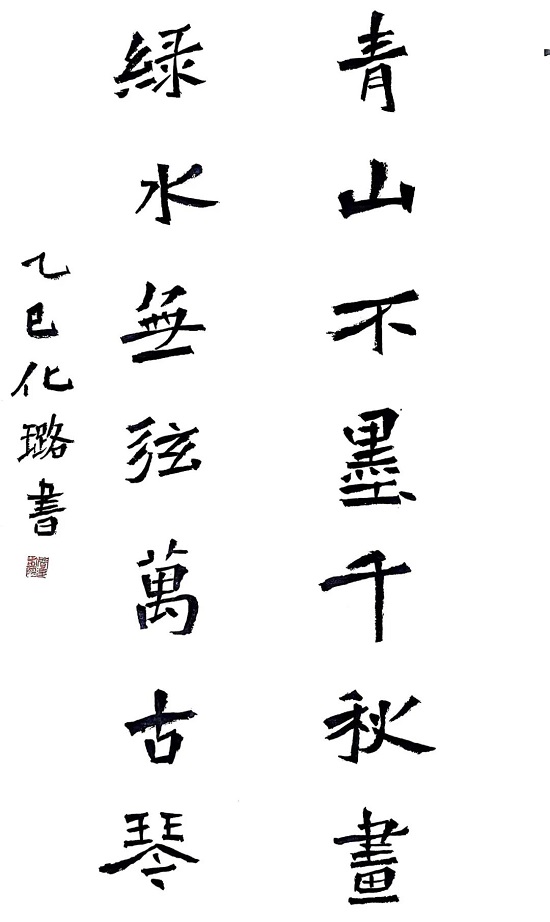 青山不墨千秋畫
綠水無弦萬古琴
乙巳化璐書